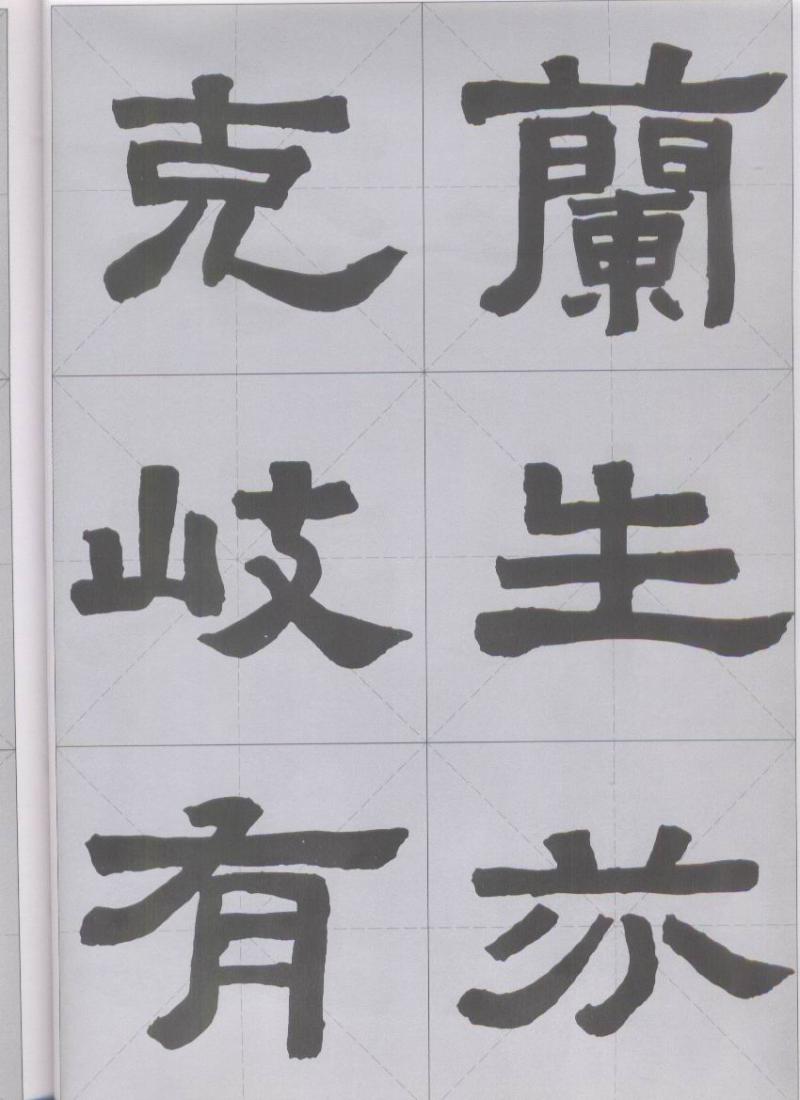 蘭生芬
克岐有